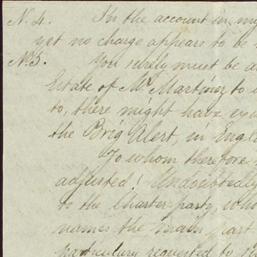 N. 4. In the account in my
yet no charge appears to be
N. 5. You surely must be a
Estate of Mr. Martinez to
to, there might have
the Brig Alert, in Engl
To whom therefore
adjusted! Undoubtedly
to the Charter party, who
names the main, part
particulary requested to